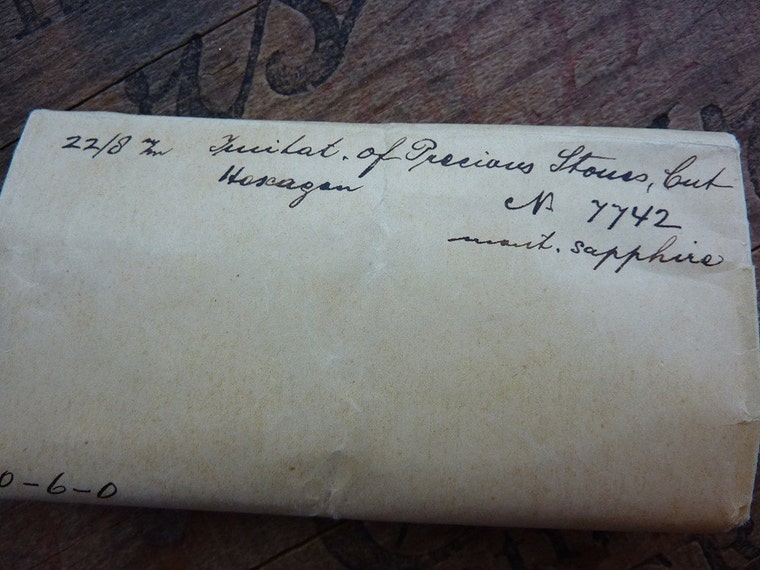 22/8 Imitat. of Precious Stones, Cut
Hexagon
No 7742
mont. sapphire
0-6-0